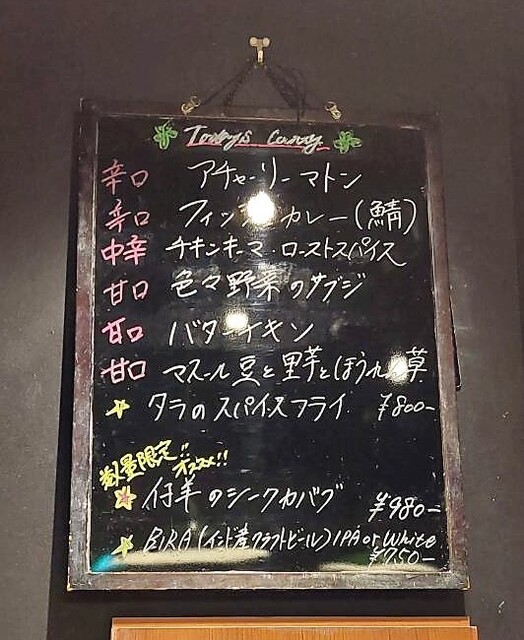 Today's Curry
辛口 アチャーリーマトン
辛口 フィッシュカレー(鯖)
中辛 チキンキーマ・ローストスパイス
甘口 色々野菜のサブジ
甘口 バターチキン
甘口 マスール豆と里芋とほうれん草
タラのスパイスフライ ¥800-
数量限定!!
オススメ!!
仔羊のシークカバブ ¥980-
BIRA(インド産クラフトビール)IPA or White
¥750-